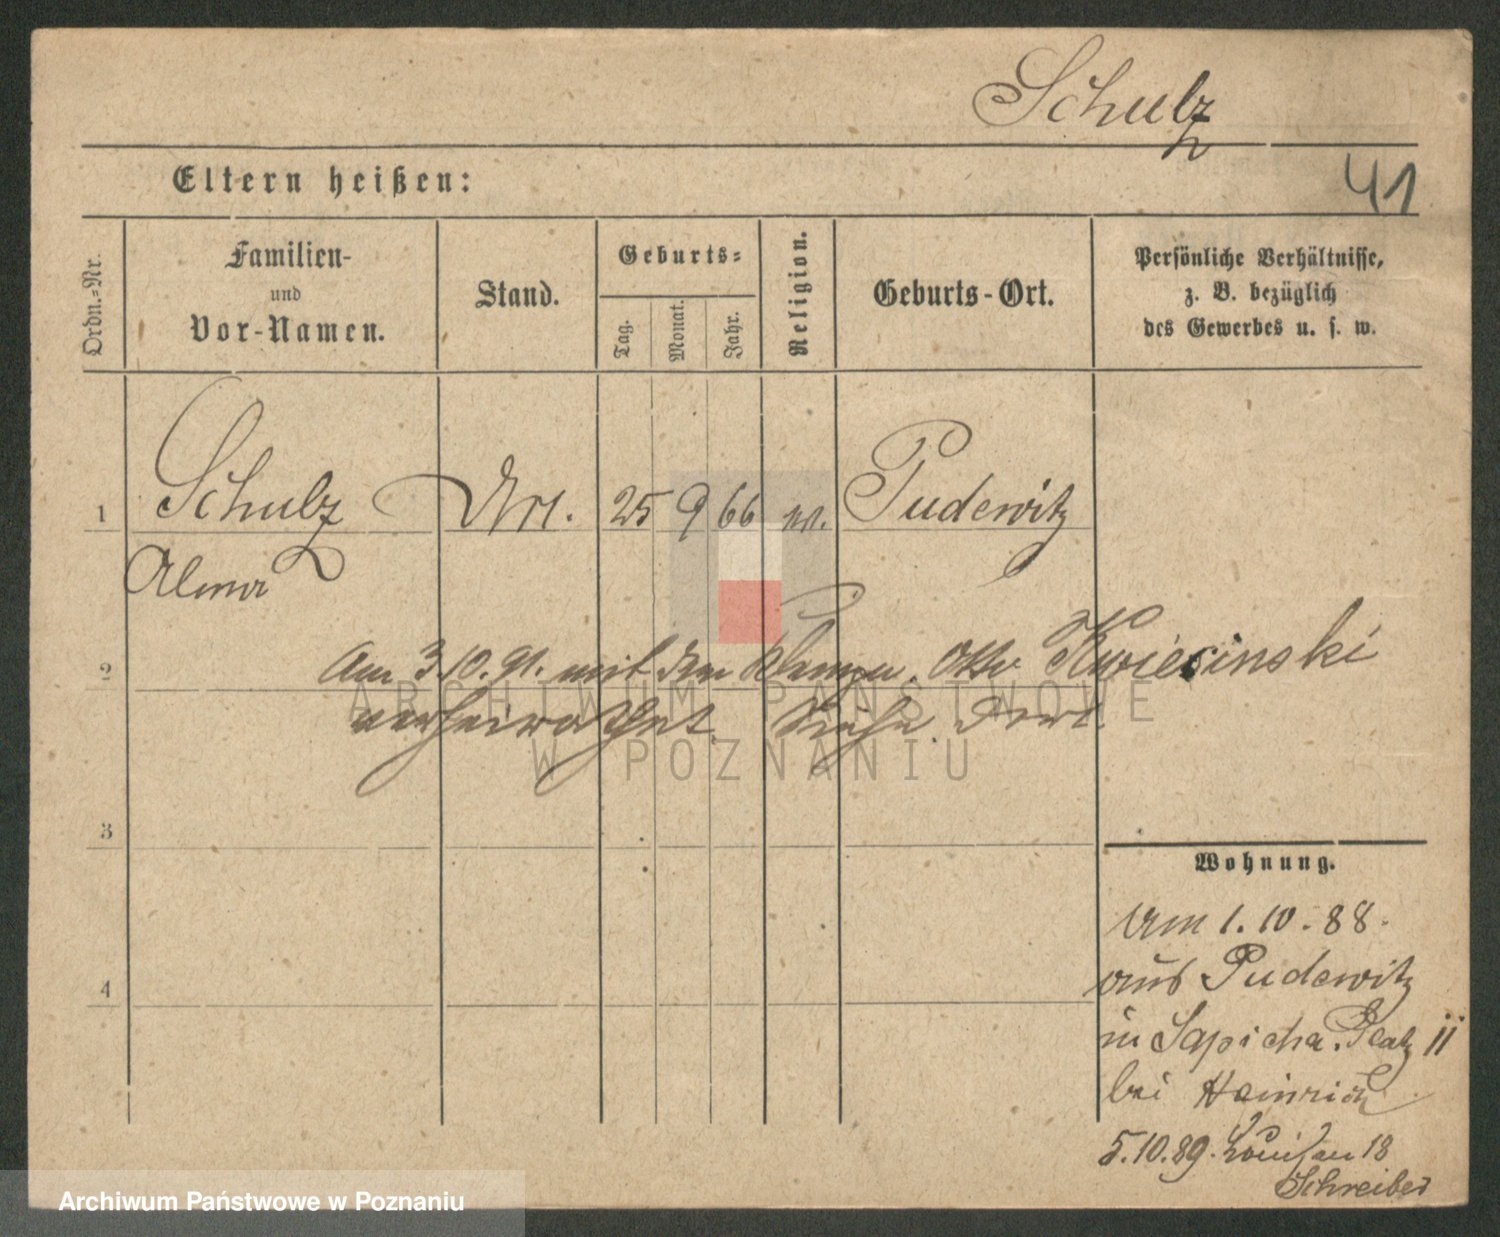 Schulz
Eltern heißen:
41
Ordn.=Nr.
Familien-
und
Vor-Namen.
Stand.
Geburts=
Tag.
Monat.
Jahr.
Religion.
Geburts-Ort.
Persönliche Verhältnisse,
z. B. bezüglich
des Gewerbes u. s. w.
1
Schulz
25
9
66
Pudewitz
Alma
2
Am 3.10.91. mit dem Otto Kwiecinski
verheirathet. Siehe dort.
3
Wohnung.
Am 1.10.88.
aus Pudewitz
4
in Sapieha Platz 11
bei Heinrich
5.10.89. Louisen 18
Schreiber
ARCHIWUM PAŃSTWOWE
W POZNANIU
Archiwum Państwowe w Poznaniu